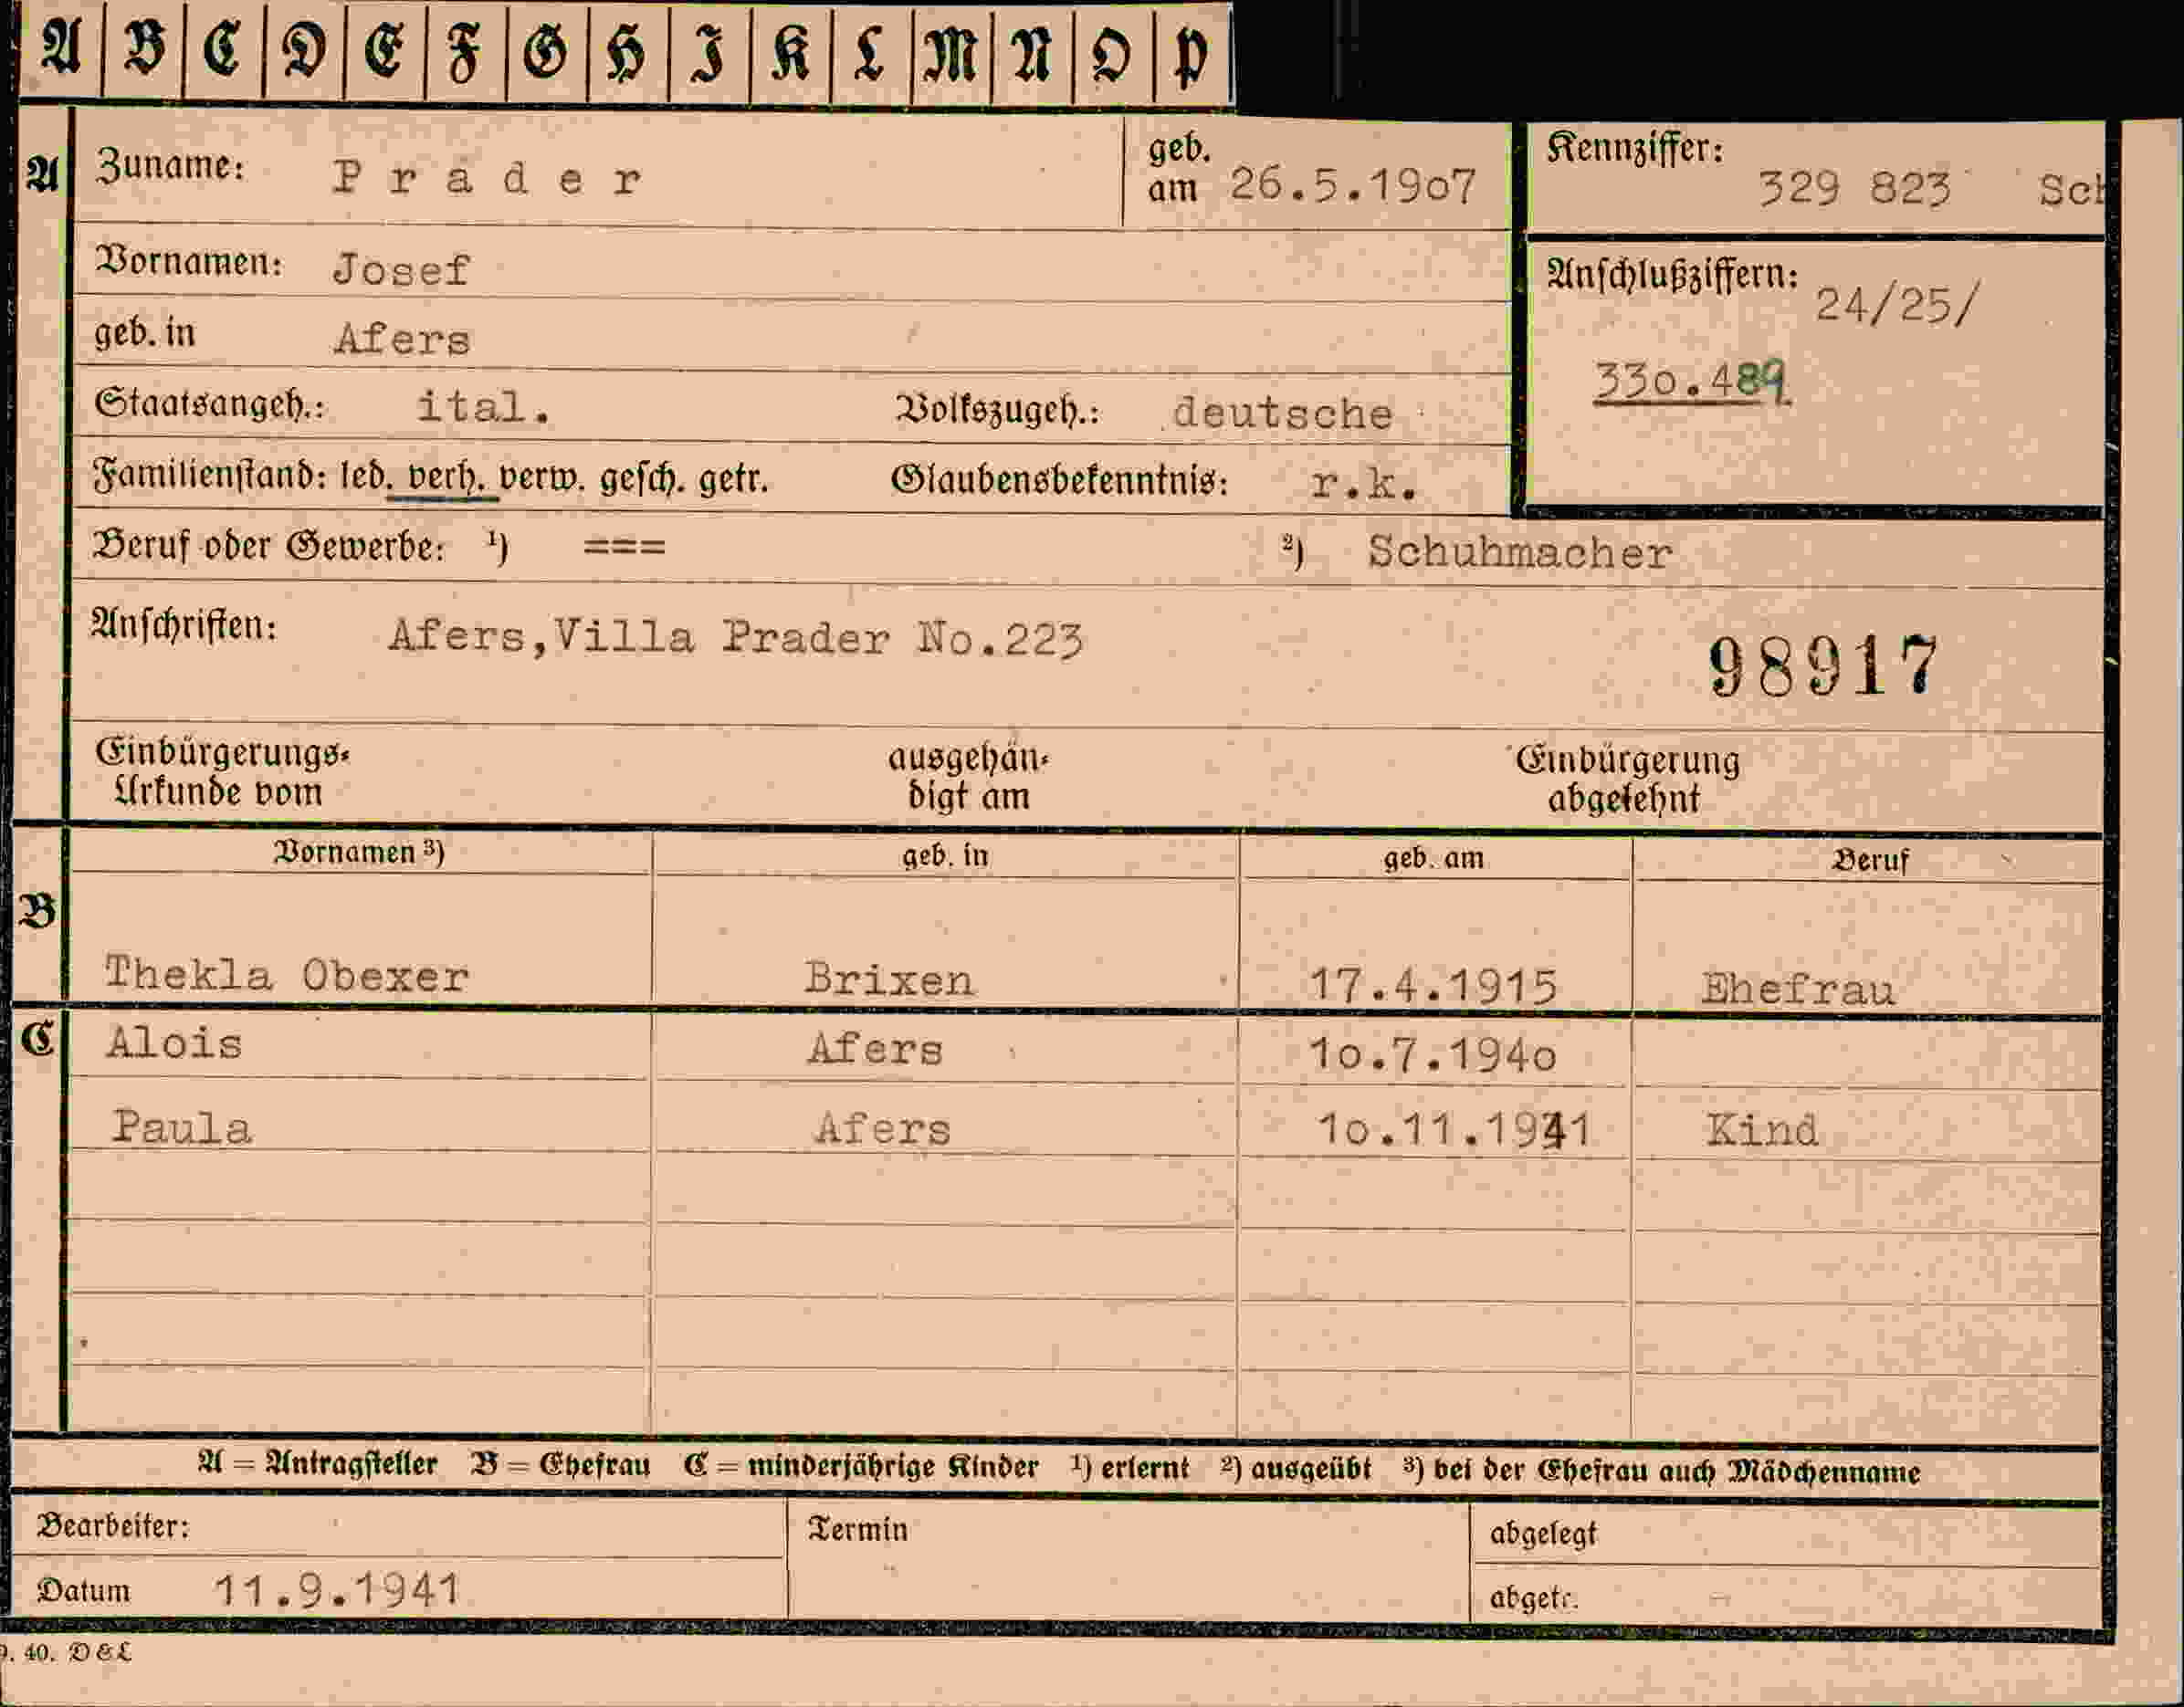 A B C D E F G H I K L M N O P
A Zuname: Prader geb. am 26.5.19o7 Kennziffer: 329 823 Sch
Vornamen: Josef Anschlußziffern: 24/25/
geb. in Afers 33o.489
Staatsangeh.: ital. Volkszugeh.: deutsche
Familienstand: led. verh. verw. gesch. getr. Glaubensbekenntnis: r.k.
Beruf oder Gewerbe: ¹) === ²) Schuhmacher
Anschriften: Afers,Villa Prader No.223
98917
Einbürgerungs- ausgehän- Einbürgerung
Urkunde vom digt am abgelehnt
Vornamen ³) geb. in geb. am Beruf
B
Thekla Obexer Brixen 17.4.1915 Ehefrau
C Alois Afers 1o.7.194o
Paula Afers 1o.11.1941 Kind
A = Antragsteller B = Ehefrau C = minderjährige Kinder ¹) erlernt ²) ausgeübt ³) bei der Ehefrau auch Mädchenname
Bearbeiter: Termin abgelegt
Datum 11.9.1941 abgetr.
. 40. D & L